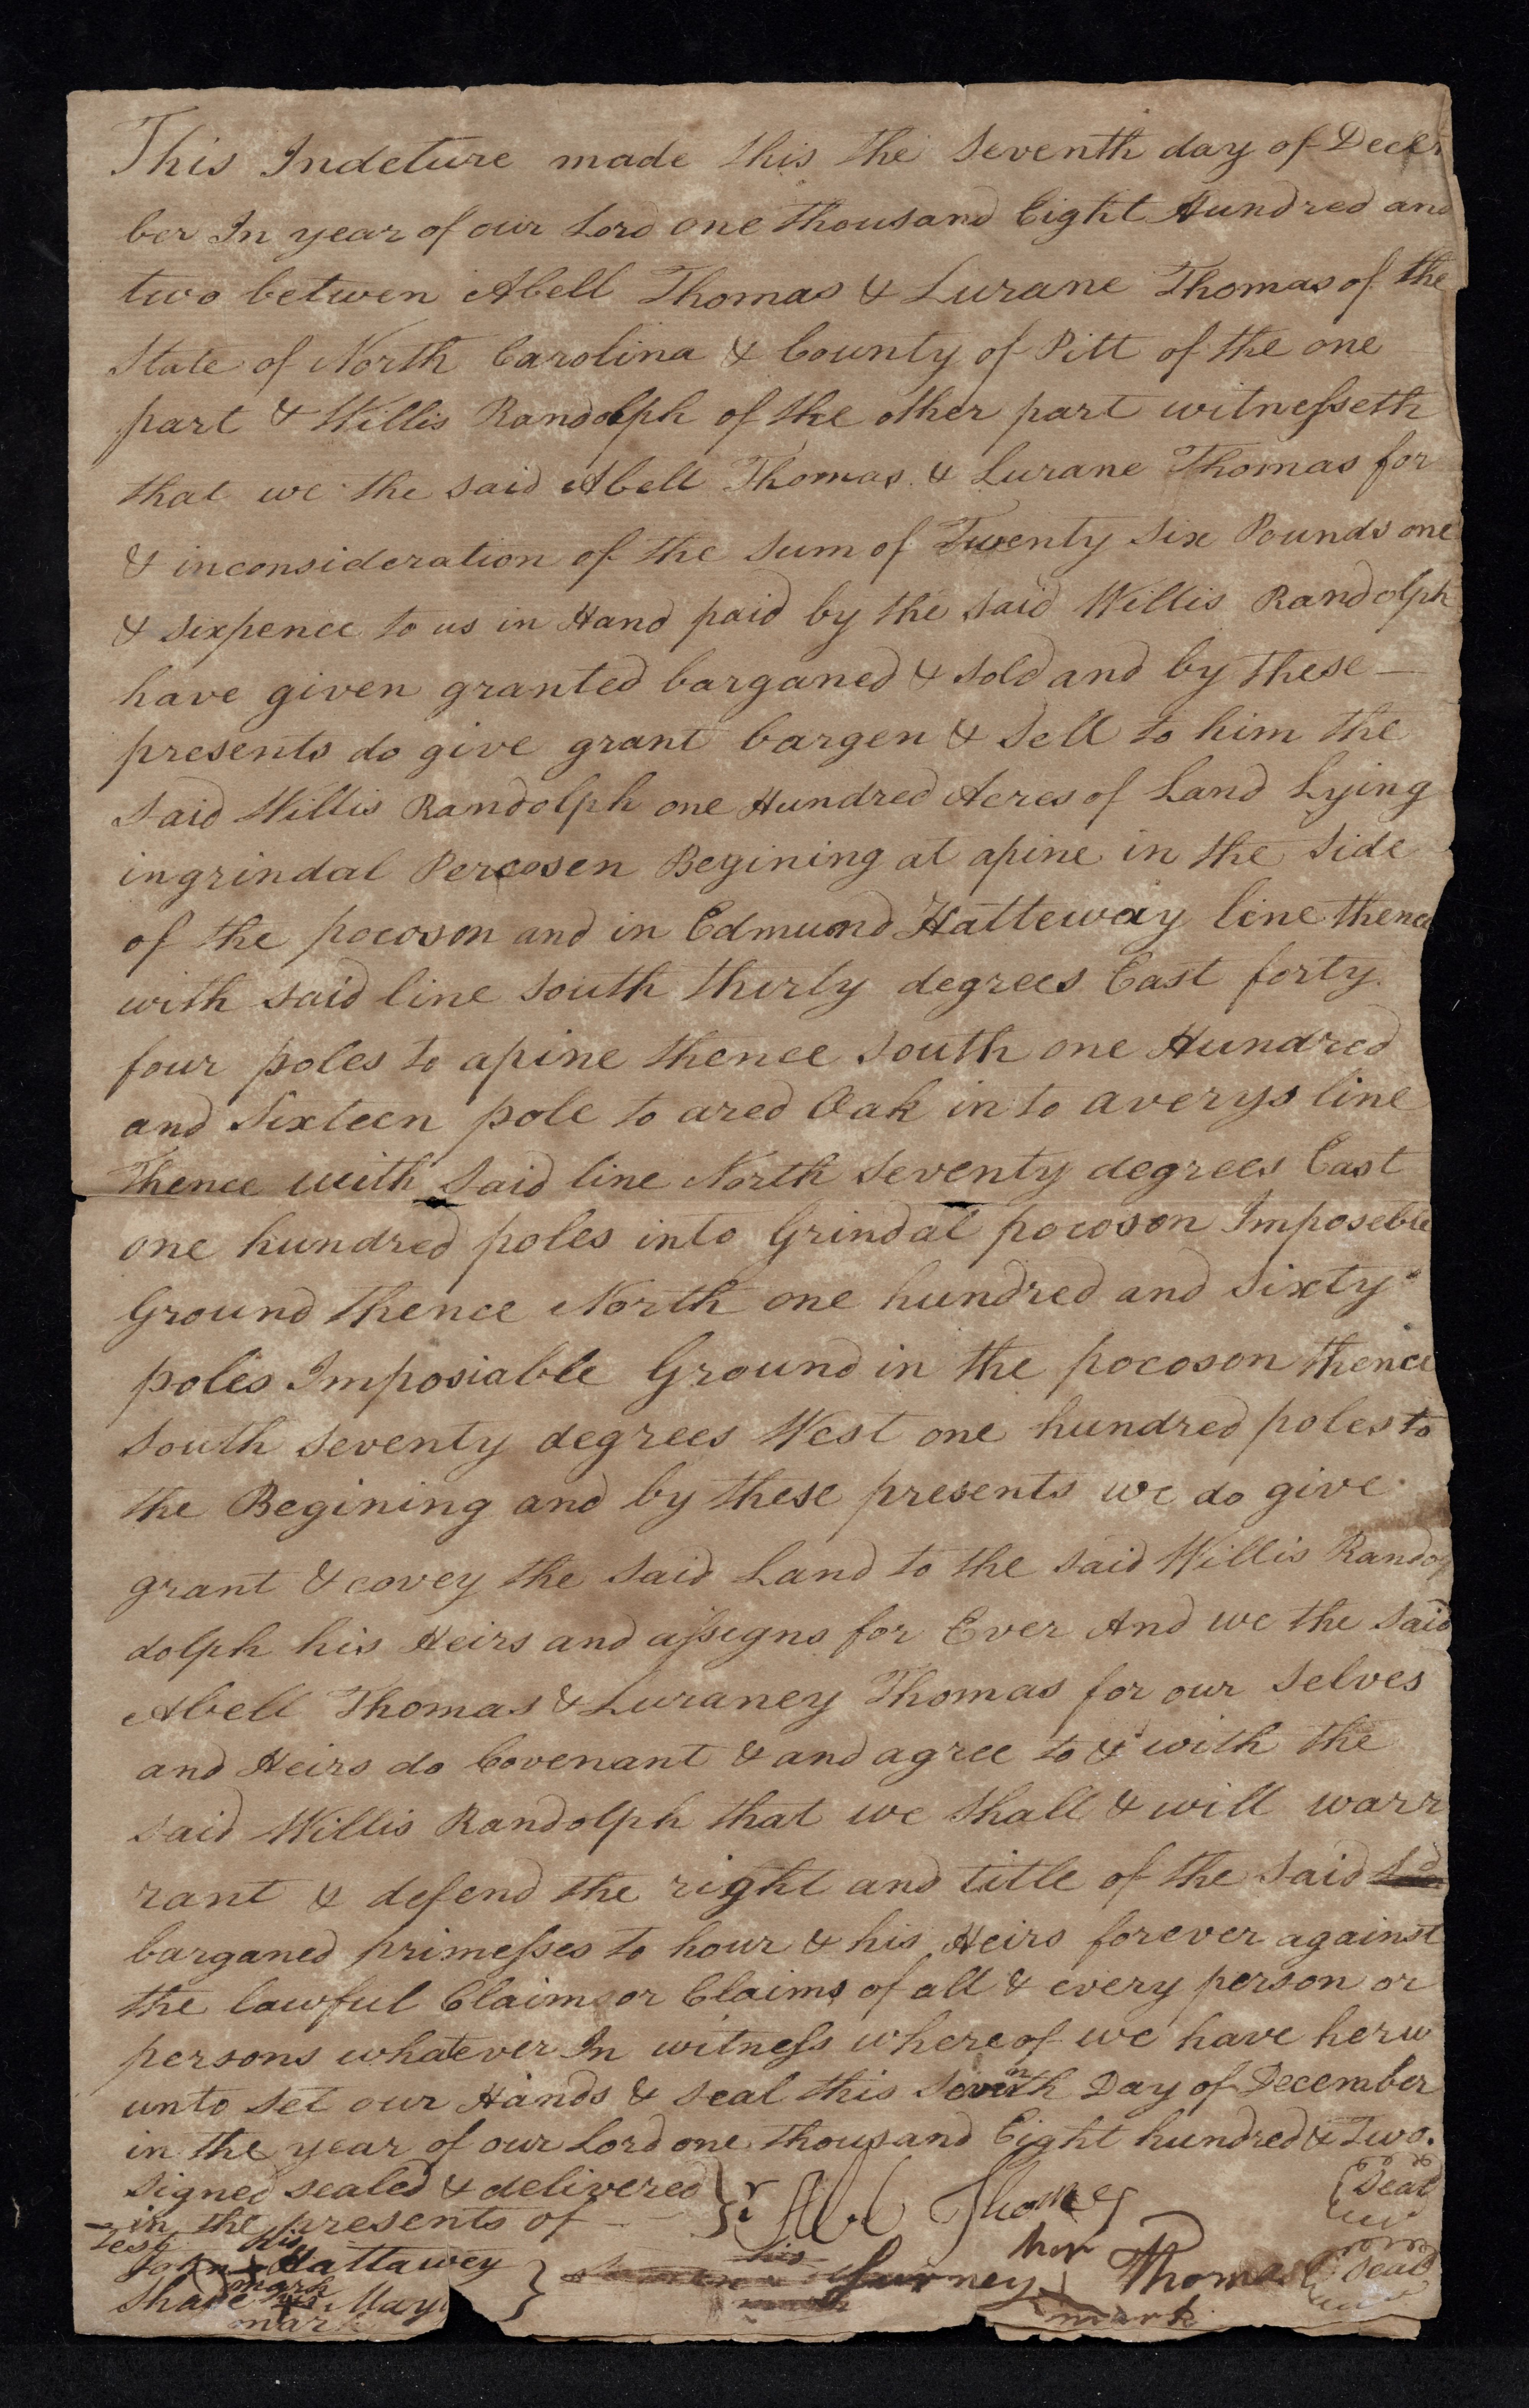 This Indeture made this the Seventh day of Decem
ber In year of our Lord one thousand Eight Hundred and
two betwen Abell Thomas & Lurane Thomas of the
State of North Carolina & County of Pitt of the one
part & Willis Randolph of the other part witnesseth
that we the said Abell Thomas & Lurane Thomas for
& inconsideration of the Sum of Twenty Six Pounds one
& sixpence to us in Hand paid by the said Willis Randolph
have given granted barganed & sold and by these —
presents do give grant bargen & Sell to him the
Said Willis Randolph one Hundred Acres of Land Lying
ingrindal Percosen Begining at apine in the Side
of the pocoson and in Edmund Hatteway line thence
with said line South thirty degrees East forty
four poles to apine thence South one Hundred
and Sixteen pole to ared Oak in to averys line
Thence with Said line North Seventy degrees East
one hundred poles into Grindal pocoson Imposeble
Ground thence North one hundred and Sixty
poles Imposiable Ground in the pocoson thence
South Seventy degrees West one hundred poles to
the Begining and by these presents we do give
grant & covey the Said Land to the Said Willis Rando
dolph his Heirs and assigns for Ever And we the Said
Abell Thomas & Luraney Thomas for our Selves
and Heirs do Covenant & and agree to & with the
said Willis Randolph that we Shall & will warr
rant & defend the right and title of the Said
barganed primesses to hour & his Heirs forever against
the lawful Claims or Claims of all & every person or
persons whatever In witness whereof we have herw
unto Set our Hands & Seal this Seventh Day of December
in the year of our Lord one thousand Eight hundred & Two.
Signed sealed & delivered
in the presents of
Abel Thomas Seal
Test
his
John Hattawey
mark
her
Lurney Thomas Seal
mark
his
Shade May
mark